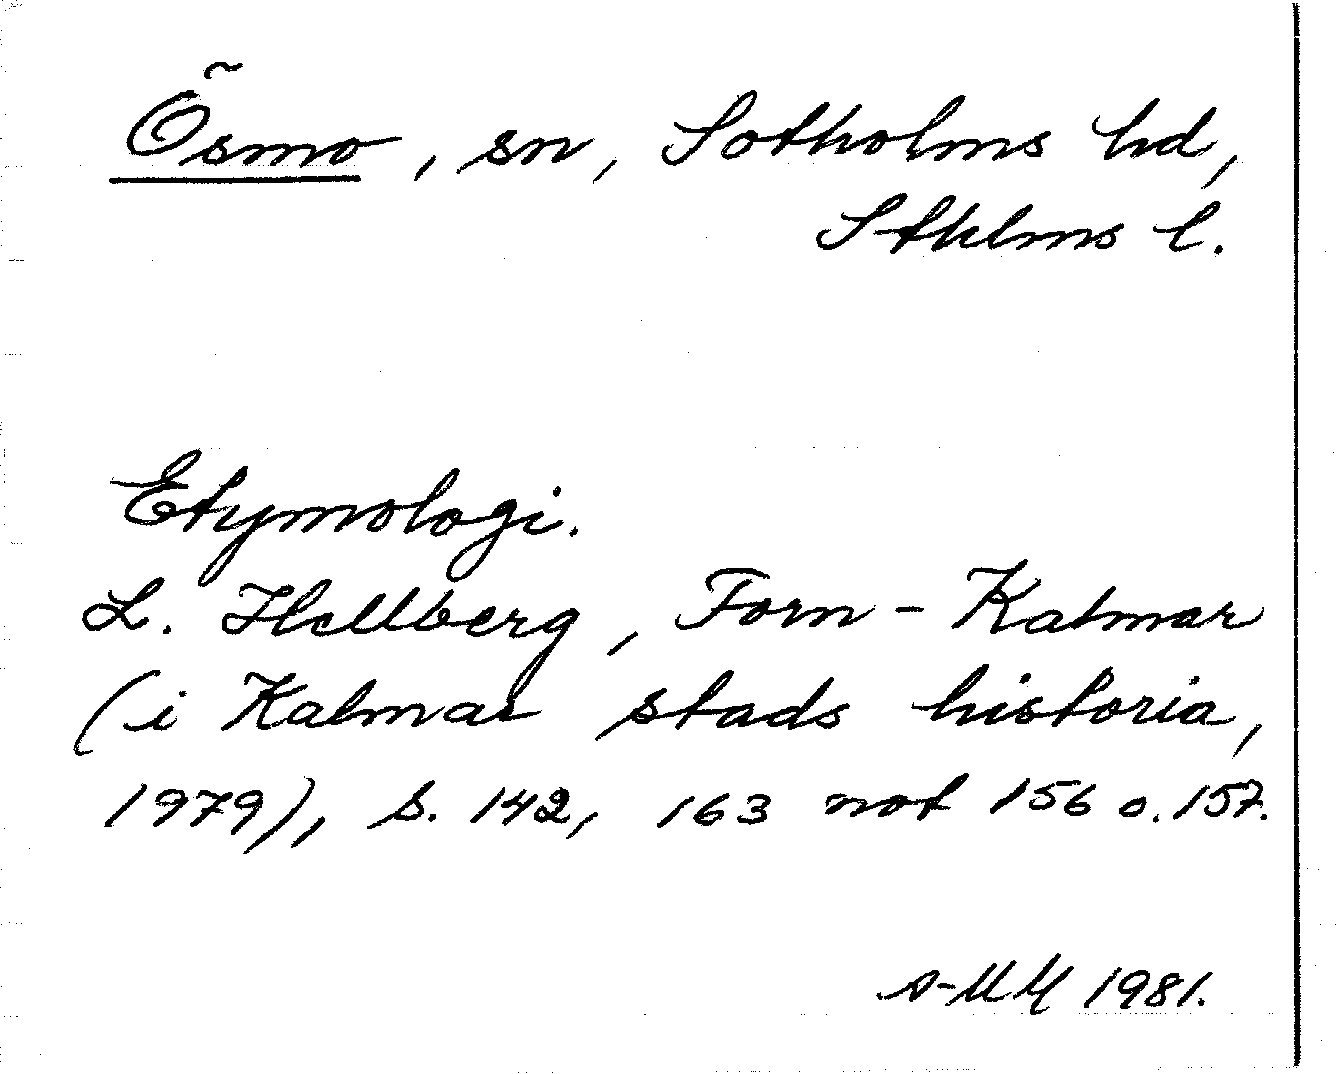 Ösmo, sn, Sotholms hd,
Sthlms l.
Etymologi.
L. Hellberg, Forn-Kalmar
(i Kalmar stads historia,
1979), s. 142, 163 not 156 o. 157.
1981.